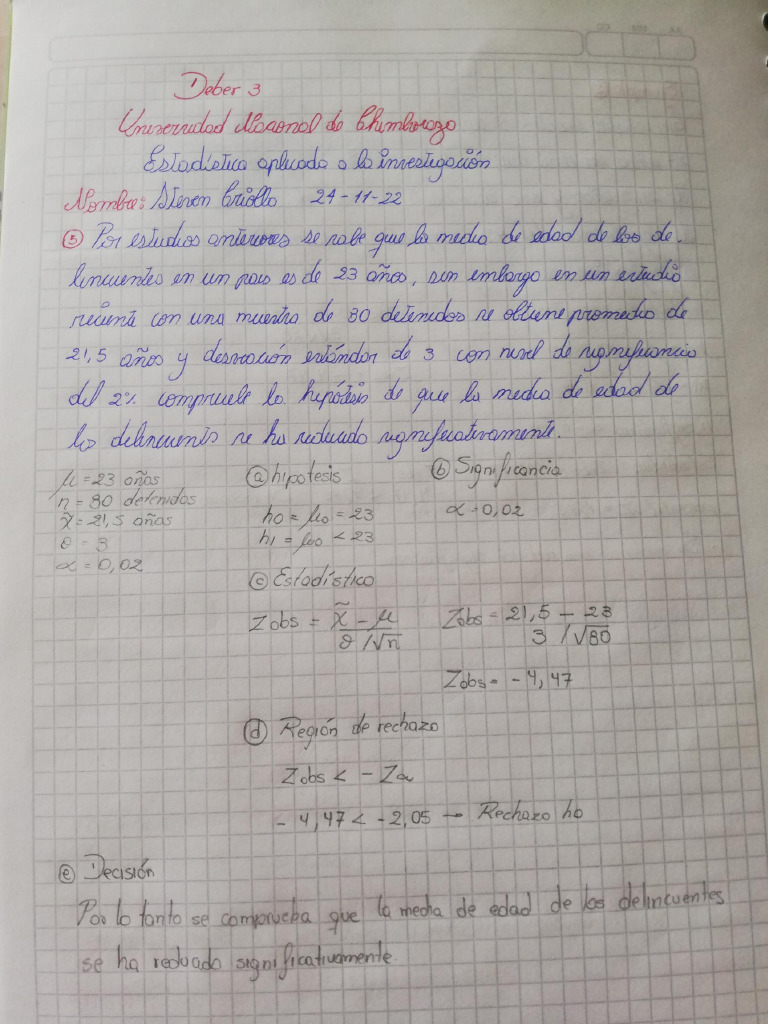 Deber 3
Universidad Nacional de Chimborazo
Estadística aplicada a la investigación
Nombre: Steven Criollo 24-11-22
⑤ Por estudios anteriores se sabe que la media de edad de los de-
lincuentes en un pais es de 23 años, sin embargo en un estudio
reciente con una muestra de 80 detenidos se obtiene promedio de
21,5 años y desviación estándar de 3 con nivel de significancia
del 2% compruebe la hipótesis de que la media de edad de
los delincuentes se ha reducido significativamente.
μ = 23 años
n = 80 detenidos
x̃ = 21,5 años
θ = 3
α = 0,02
ⓐ hipotesis
h0 = μ0 = 23
h1 = μ0 < 23
ⓑ Significancia
α = 0,02
ⓒ Estadístico
Zobs = x̃ - μ / θ /√n
Zobs = 21,5 - 23 / 3 /√80
Zobs = - 4,47
ⓓ Región de rechazo
Zobs < - Zα
- 4,47 < - 2,05 → Rechazo h0
ⓔ Decisión
Por lo tanto se comprueba que la media de edad de los delincuentes
se ha reducido significativamente.